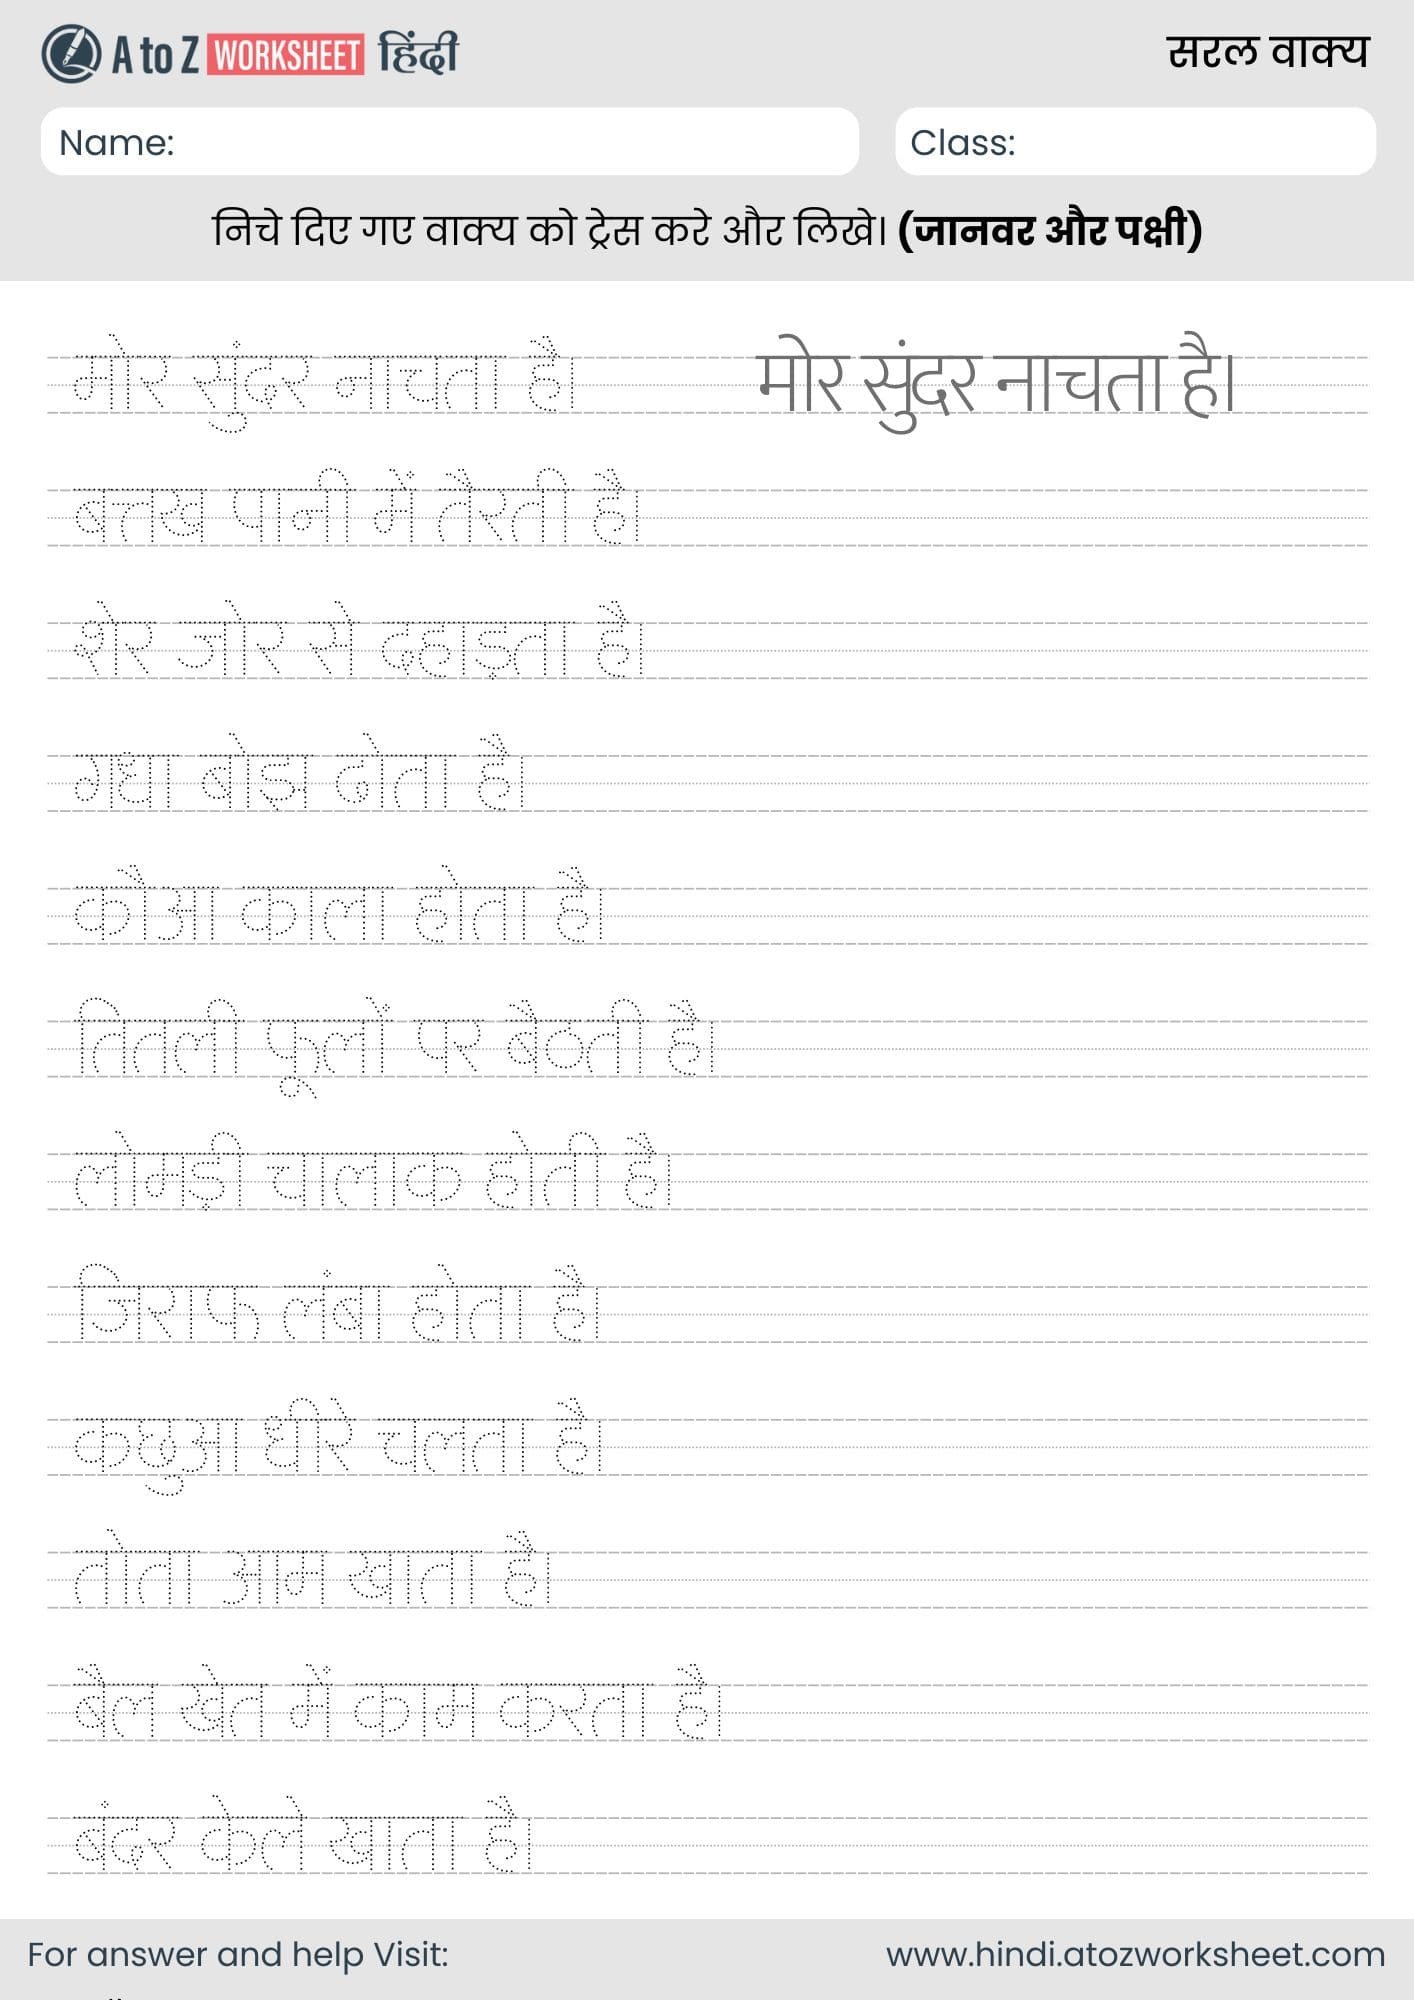 A to Z WORKSHEET हिंदी
सरल वाक्य
Name:
Class:
निचे दिए गए वाक्य को ट्रेस करे और लिखे। (जानवर और पक्षी)
मोर सुंदर नाचता है। मोर सुंदर नाचता है।
बत्तख पानी में तैरती है।
शेर जोर से दहाड़ता है।
गधा बोझ ढोता है।
कौआ काला होता है।
तितली फूलों पर बैठती है।
लोमड़ी चालाक होती है।
जिराफ लंबा होता है।
कछुआ धीरे चलता है।
तोता आम खाता है।
बैल खेत में काम करता है।
बंदर केले खाता है।
For answer and help Visit:
www.hindi.atozworksheet.com